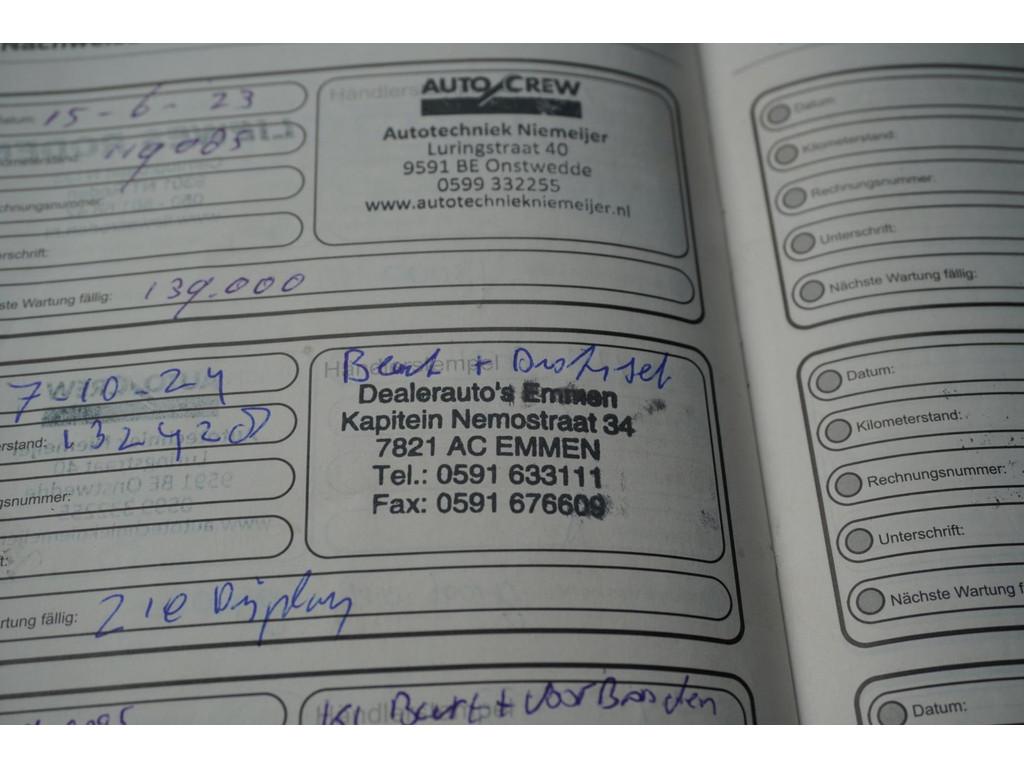 Datum: 15-6-23
Händlers
AUTO CREW
Autotechniek Niemeijer
Luringstraat 40
9591 BE Onstwedde
0599 332255
www.autotechniekniemeijer.nl
119085
chnungsnummer:
erschrift:
ste Wartung fällig: 139.000
7-10-24
erstand: 132420
gsnummer:
t:
Händlerstempel
Beurt + Distr.set
Dealerauto's Emmen
Kapitein Nemostraat 34
7821 AC EMMEN
Tel.: 0591 633111
Fax: 0591 676609
artung fällig: Zie Display
Kl Beurt + Voor Banden
Datum:
Kilometerstand:
Rechnungsnummer:
Unterschrift:
Nächste Wartung fällig:
Datum:
Kilometerstand:
Rechnungsnummer:
Unterschrift:
Nächste Wartung f
Datum: